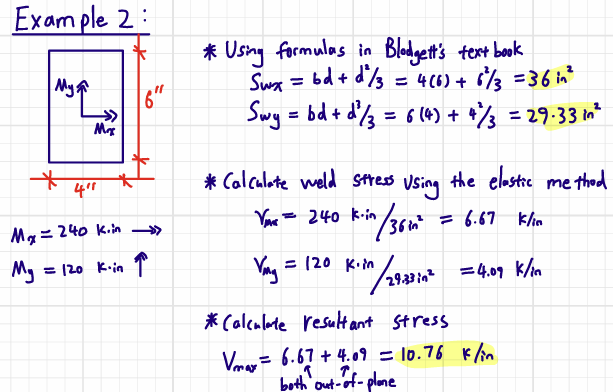 Example 2:
* Using formulas in Blodgett's text book
My
Mx
6"
4"
Swx = bd + d²/3 = 4(6) + 6²/3 = 36 in²
Swy = bd + d²/3 = 6(4) + 4²/3 = 29.33 in²
* Calculate weld stress using the elastic method
Mx = 240 K·in →→
My = 120 K·in ↑
VMx = 240 K·in / 36 in² = 6.67 K/in
VMy = 120 K·in / 29.33 in² = 4.09 K/in
* Calculate resultant stress
Vmax = 6.67 + 4.09 = 10.76 K/in
both out-of-plane